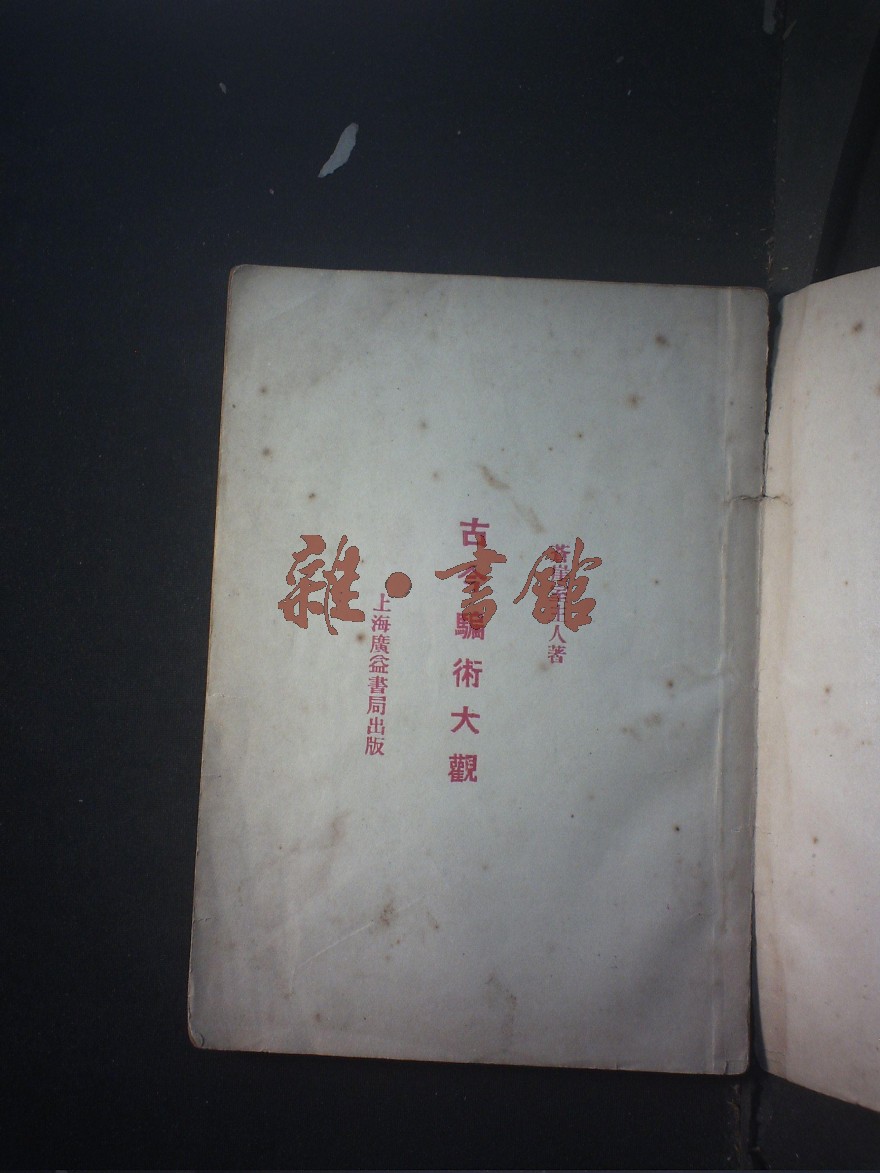 人著
古今騙術大觀
上海廣益書局出版
雜·書館